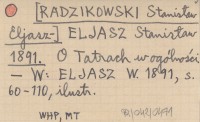 [RADZIKOWSKI Stanisław
Eljasz-] ELJASZ Stanisław
1891. O Tatrach w ogólności
- W: ELJASZ W. 1891, s.
60-110, ilustr.
WHP, MT